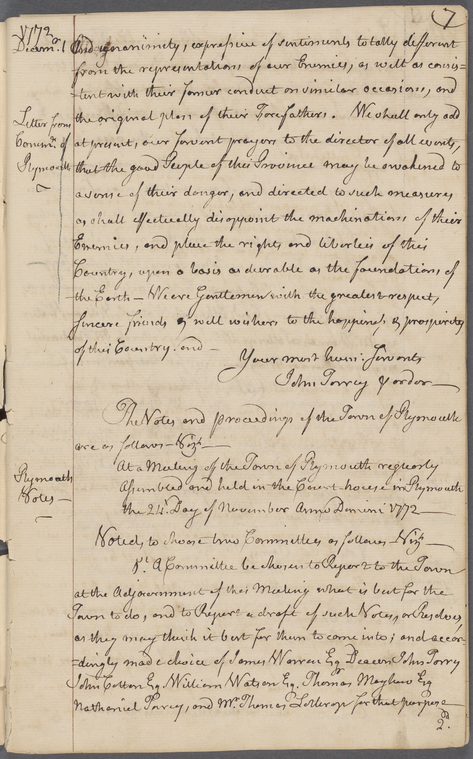 7
1772
Decemr. 1
and unanimity, expressive of sentiments totally different
from the representations of our Enemies, as well as consis=
tent with their former conduct on similar occasions, and
the original plan of their Forefathers. We shall only add
Letter from
Committ. of
Plymouth
at present, our fervent prayers to the director of all events,
that the good People of this Province may be awakened to
a sense of their danger, and directed to such measures
as shall effectually disappoint the machinations of their
Enemies, and place the rights and liberties of this
Country, upon a basis as durable as the foundations of
the Earth — We are Gentlemen with the greatest respect,
sincere friends & well wishers to the happiness & prosperity
of this Country. and —
Your most hum: Servants
John Torrey order —
The Votes and proceedings of the Town of Plymouth
are as follows — Vizt. —
Plymouth
Votes —
At a Meeting of the Town of Plymouth regularly
assembled and held in the Court-house in Plymouth
the 24. Day of November Anno Domini 1772 —
Voted to choose two Committees as follows — Vizt. —
1st. A Committee be chosen to Report to the Town
at the Adjournment of this Meeting what is best for the
Town to do, and to Report a draft of such Votes, or Resolves,
as they may think it best for them to come into; and accor-
=dingly made choice of James Warren Esq. Deacon John Torrey
John Cotton Esq. William Watson Esq. Thomas Mayhew Esq
Nathaniel Torrey, and Mr. Thomas Lothrop for that purpose
2d.